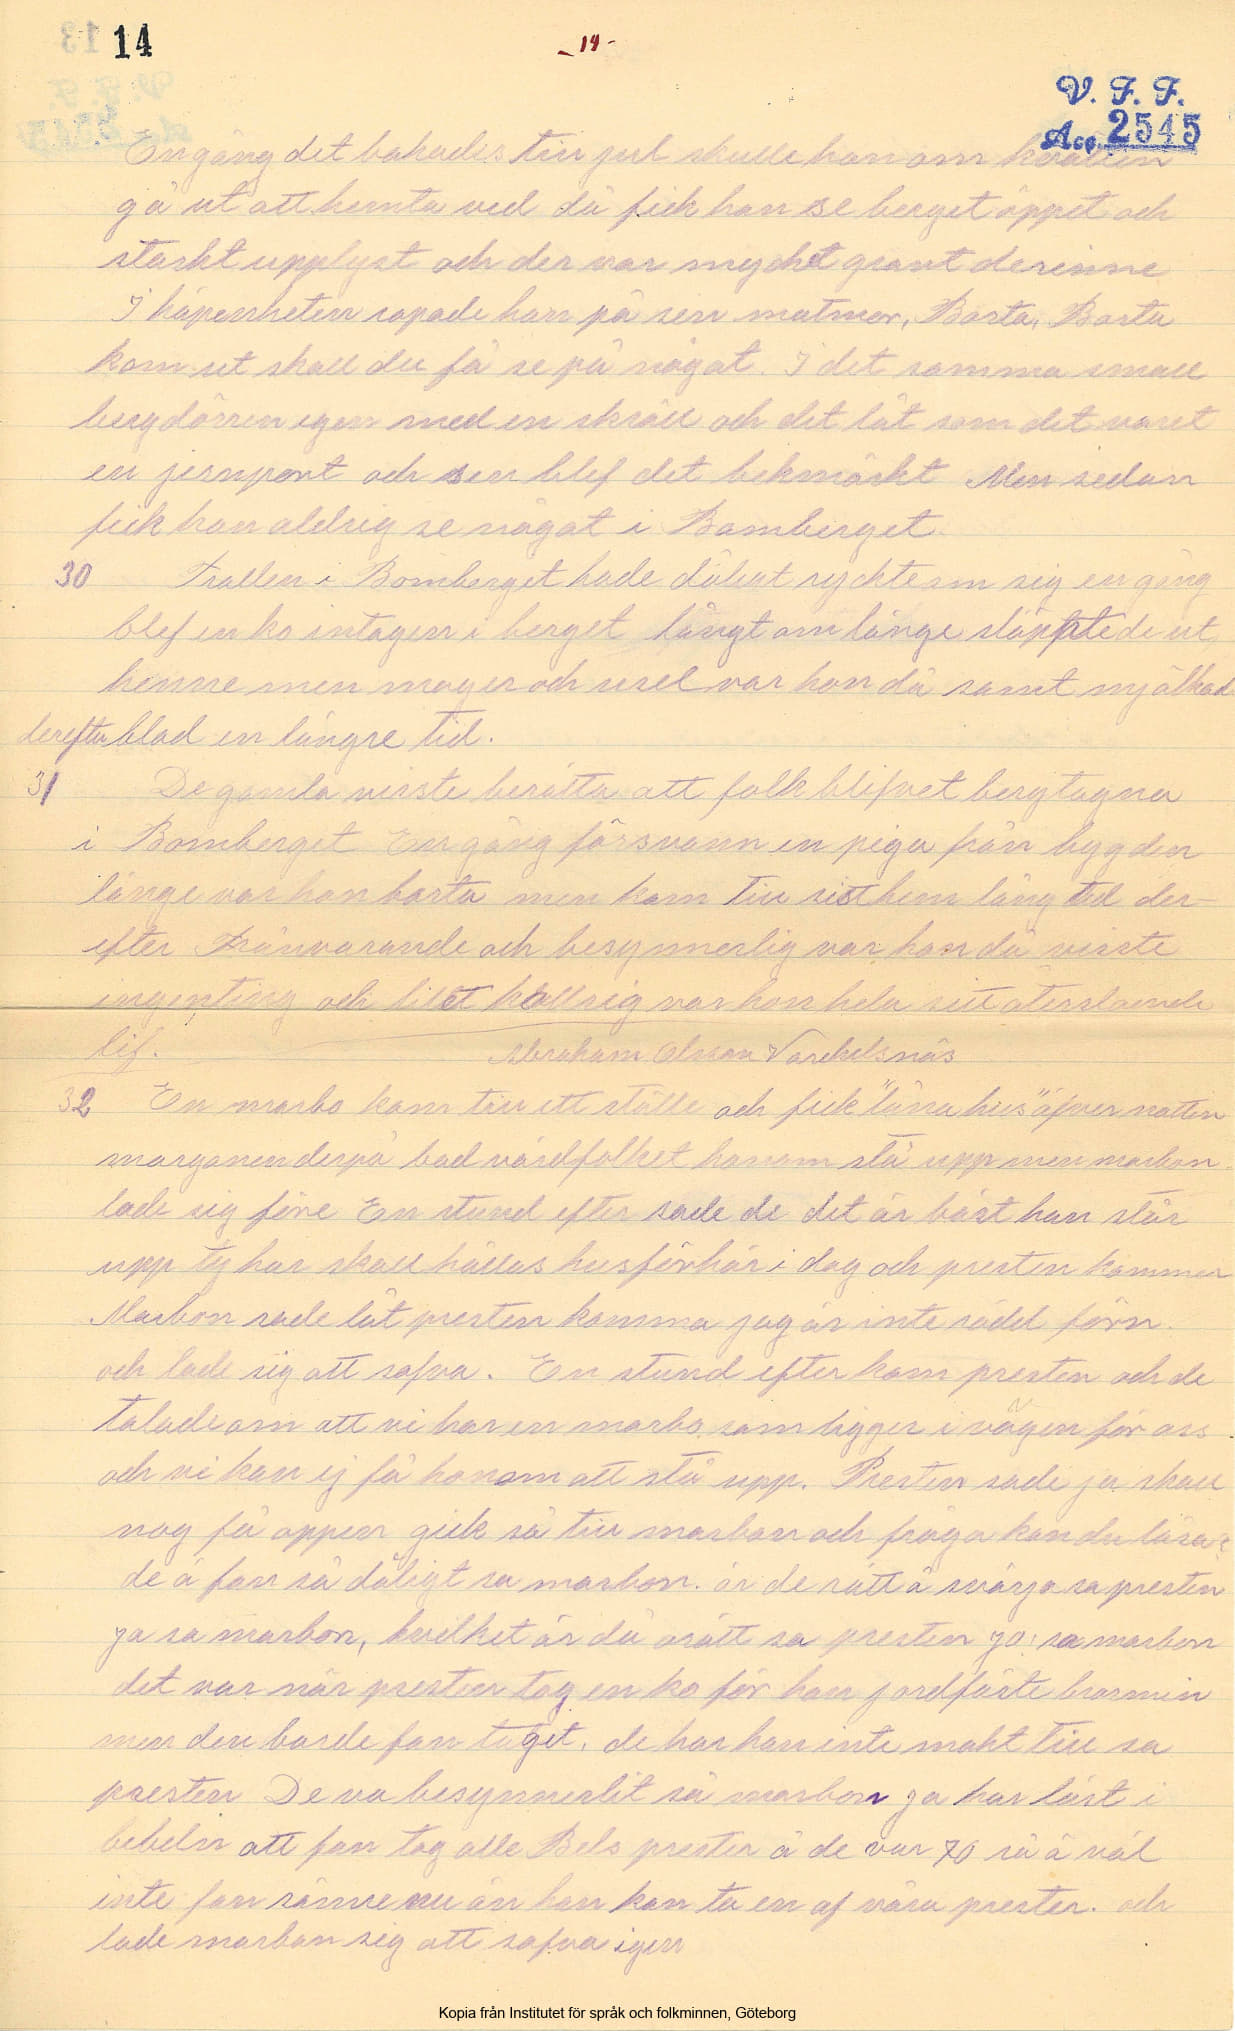 14
- 14 -
V. F. F.
Acc. 2545
En gång det bakades till jul skulle han om kvällen
gå ut att hemta ved då fick han se berget öppet och
starkt upplyst och der var mycket grant derinne
I häpenheten ropade han på sin matmor, Borta, Borta
kom ut skall du få se på något. I det samma small
bergdörren igen med en skräll och det lät som det varet
en jernport och sen blef det bekmörkt Men sedan
fick han aldrig se något i Bomberget.
30 Trollen i Bomberget hade dåligt rychte om sig en gång
blef en ko intagen i berget långt om länge släppte de ut
henne men mager och usel var hon då samt mjölkad
derefter blod en längre tid.
31 De gamla visste berätta att folk blifvet bergtagna
i Bomberget En gång försvann en piga från bygden
länge var hon borta men kom till sist hem lång tid der-
efter Frånvarande och besynnerlig var hon då visste
ingenting och litet kollrig var hon hela sitt återstående
lif. Abraham Olsson Varekelsnäs
32 En marbo kom till ett ställe och fick "låna hus" öfver natten
morgonen derpå bad värdfolket honom stå upp men marbon
lade sig före En stund efter sade de det är bäst han står
upp ty har skall hållas husförhör i dag och presten kommer
Marbon sade låt presten komma jag är inte rädd förn.
och lade sig att sofva. En stund efter kom presten och de
talade om att vi har en marbo som ligger i vägen för oss
och vi kan ej få honom att stå upp. Presten sade ja skall
nog få oppen gick så till marbon och fråga kan du läsa?
de ä fan så dåligt sa marbon. är de rätt å svärja sa presten
ja sa marbon, hvilket är då orätt sa presten jo! sa marbon
det var när presten tog en ko för han jordfäste bror min
men den borde fan taget. de har han inte makt till sa
presten De va besynnerlit sa marbon ja har läst i
bebeln att fan tog alle Bels prester å de var 70 så ä väl
inte fan sämre nu än han kan ta en af våra prester. och
lade marbon sig att sofva igen
Kopia från Institutet för språk och folkminnen, Göteborg